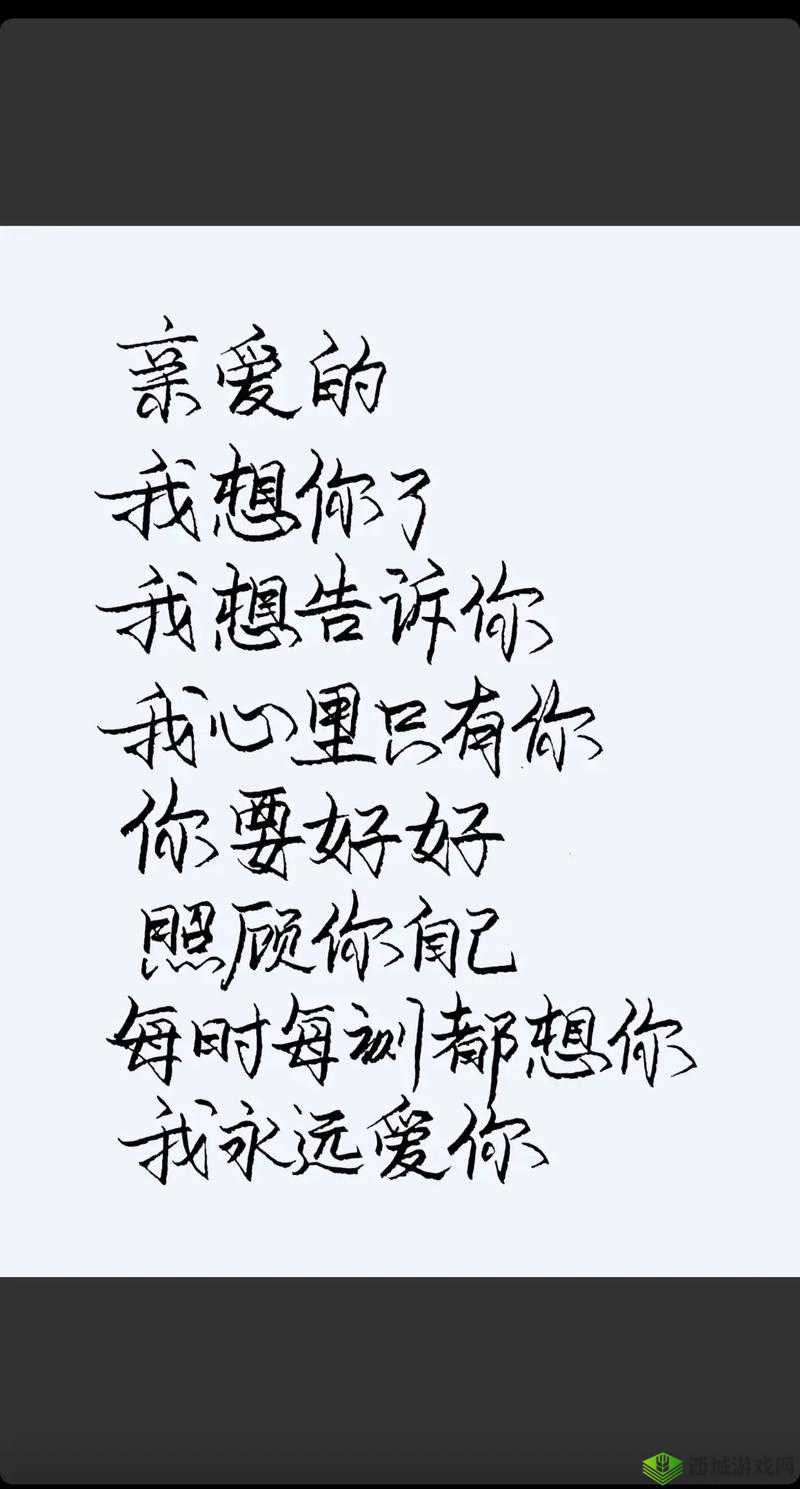 亲爱的
我想你了
我想告诉你
我心里只有你
你要好好
照顾你自己
每时每刻都想你
我永远爱你
西域游戏网